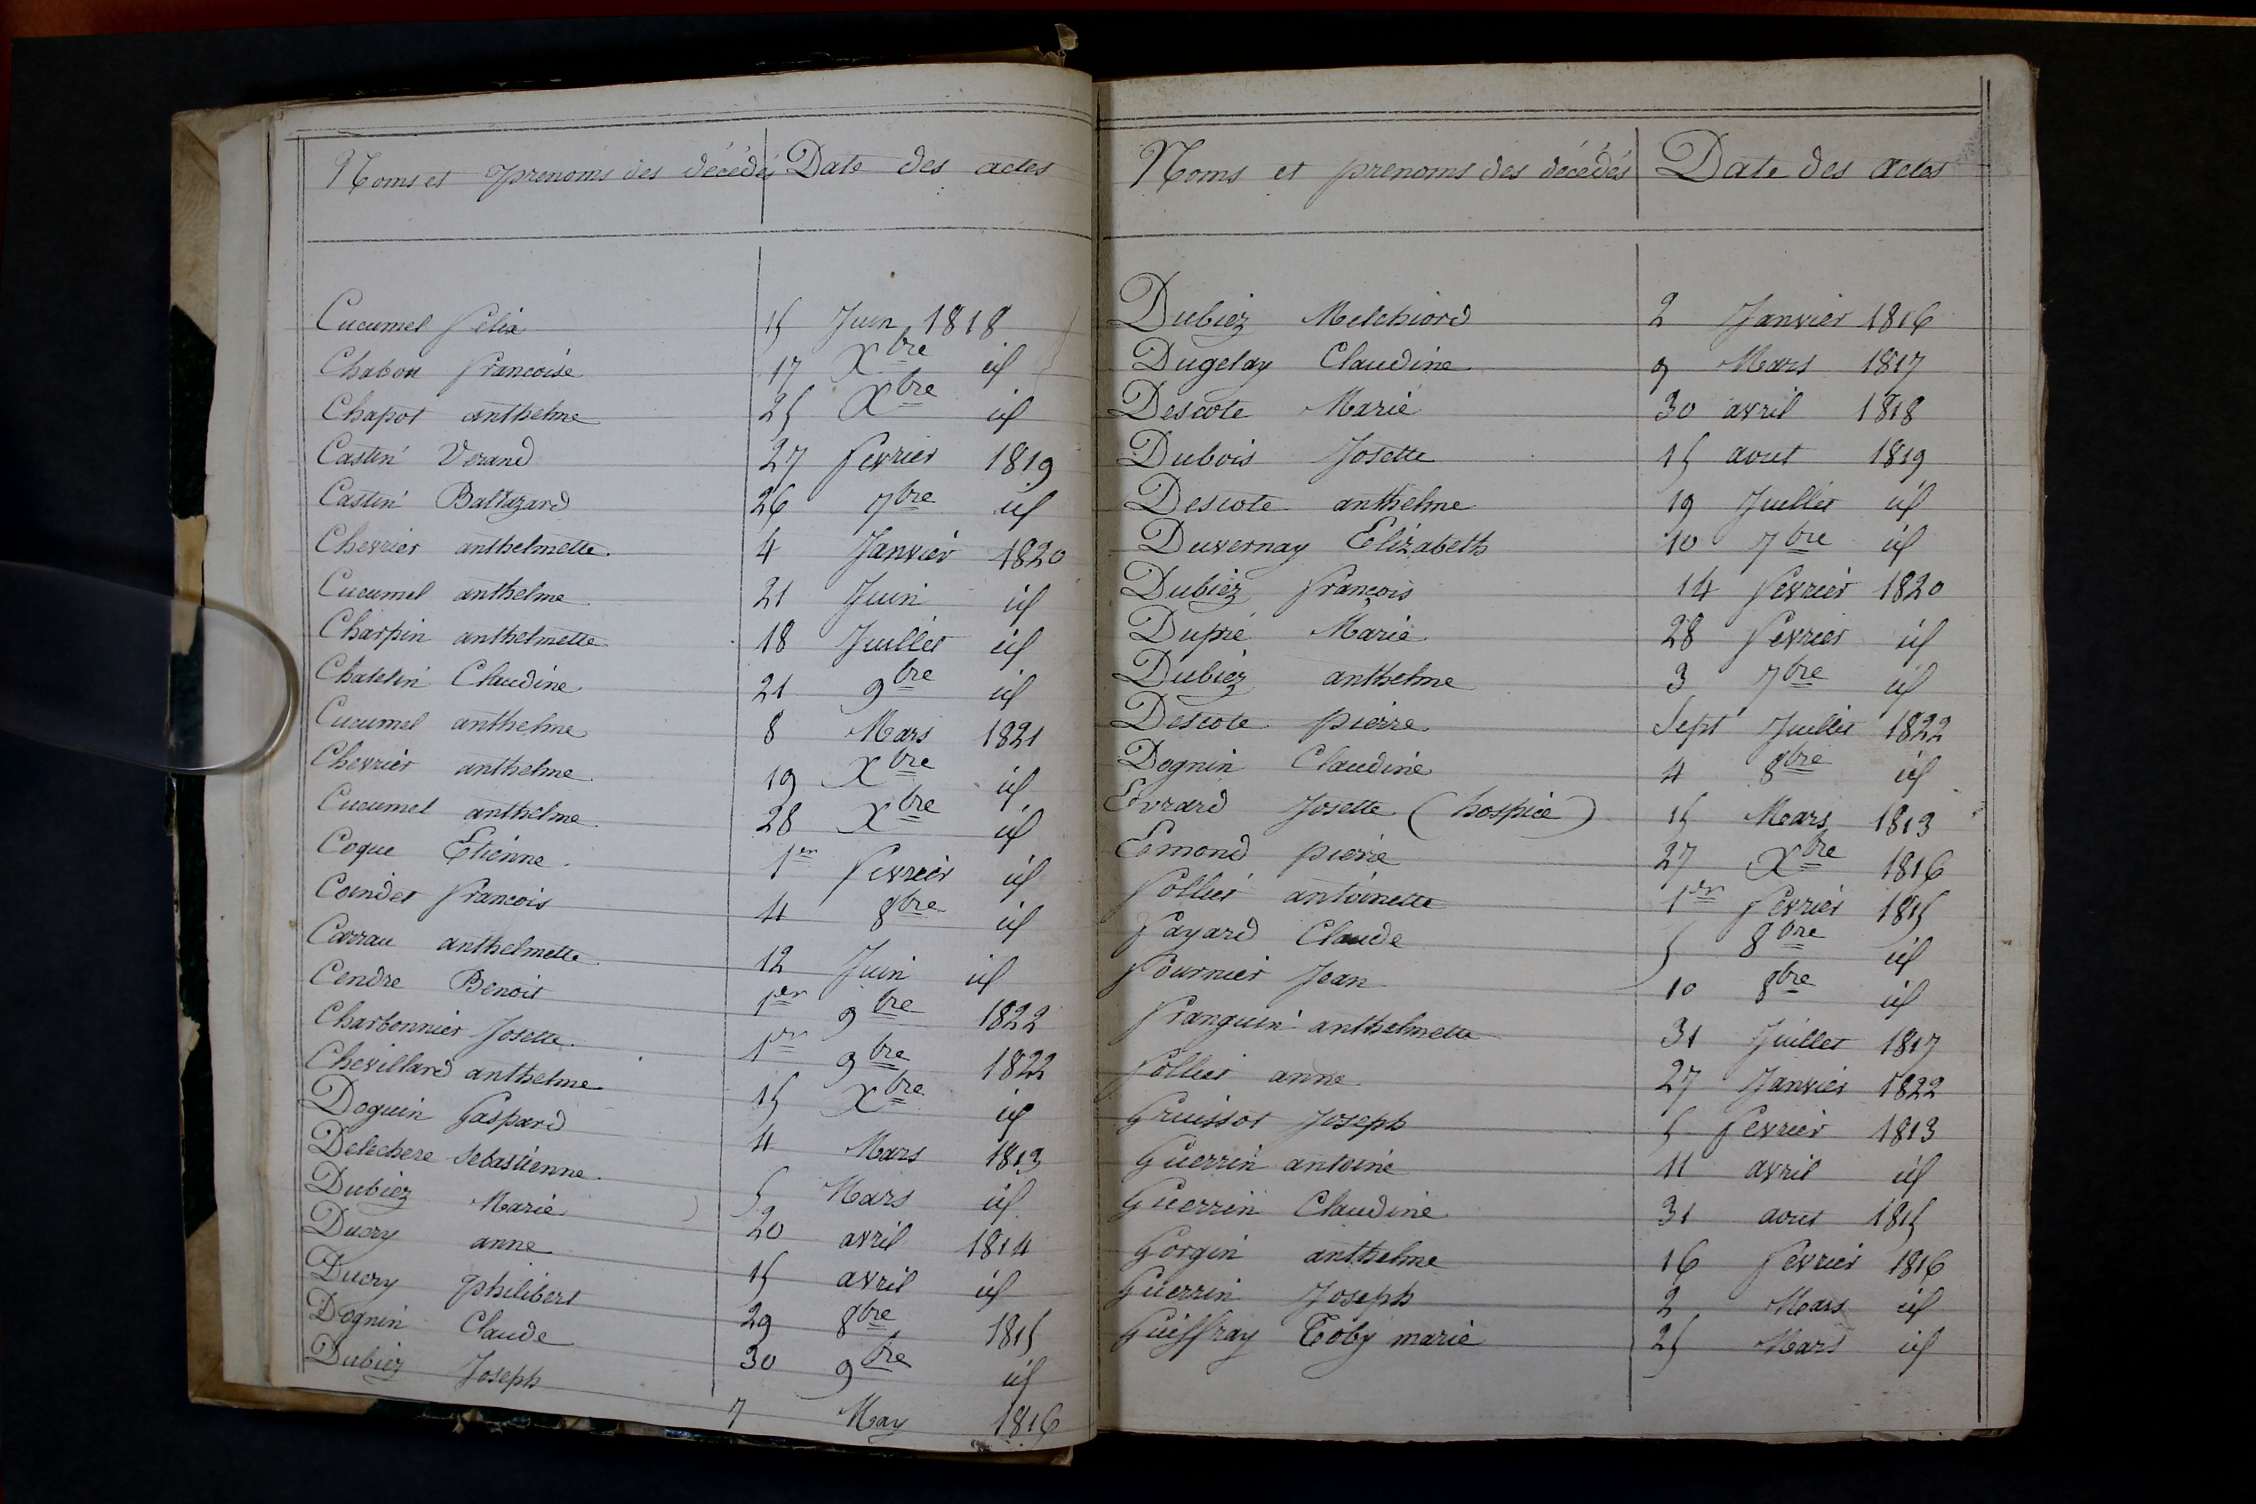 Noms et prenoms des décédés Date des actes
Cucumel felix 15 Juin 1818
Chabou francoise 17 Xbre id
Chapot anthelme 25 Xbre id
Castin Verand 27 fevrier 1819
Castin Baltazard 26 7bre id
Chevrier anthelmette 4 Janvier 1820
Cucumel anthelme 21 Juin id
Charpin anthelmette 18 Juillet id
Chatelin Claudine 21 9bre id
Cucumel anthelme 8 Mars 1821
Chevrier anthelme 19 Xbre id
Cucumel anthelme 28 Xbre id
Coque Etienne 1er fevrier id
Coindet francois 11 8bre id
Carrau anthelmette 12 Juin id
Cendre Benoit 1er 9bre 1822
Charbonnier Josette 1er 9bre 1822
Chevillard anthelme 15 Xbre id
Doguin Gaspard 11 Mars 1813
Delechere Sebastienne 5 Mars id
Dubiez Marie 20 avril 1814
Ducry anne 15 avril id
Ducry philibert 29 8bre 1815
Dognin Claude 30 9bre id
Dubiez Joseph 7 May 1816
Noms et prenoms des décédés Date des actes
Dubiez Melchiord 2 Janvier 1816
Dugelay Claudine 9 Mars 1817
Descote Marie 30 avril 1818
Dubois Josette 15 aout 1819
Descote anthelme 19 Juillet id
Duvernay Elizabeth 10 7bre id
Dubiez françois 14 fevrier 1820
Dupré Marie 28 fevrier id
Dubiez anthelme 3 7bre id
Descote pierre Sept Juillet 1822
Dognin Claudine 4 8bre id
Evrard Josette (hospice) 15 Mars 1813
Emond pierre 27 Xbre 1816
follier antoinette 1er fevrier 1815
fayard Claude 5 8bre id
fournier Jean 10 8bre id
franguin anthelmette 31 Juillet 1817
follier anne 27 Janvier 1822
Gruissot Joseph 5 fevrier 1813
Guerrin antoine 11 avril id
Guerrin Claudine 31 aout 1815
Gorgin anthelme 16 fevrier 1816
Guerrin Joseph 2 Mars id
Guiffray Toby marie 25 Mars id